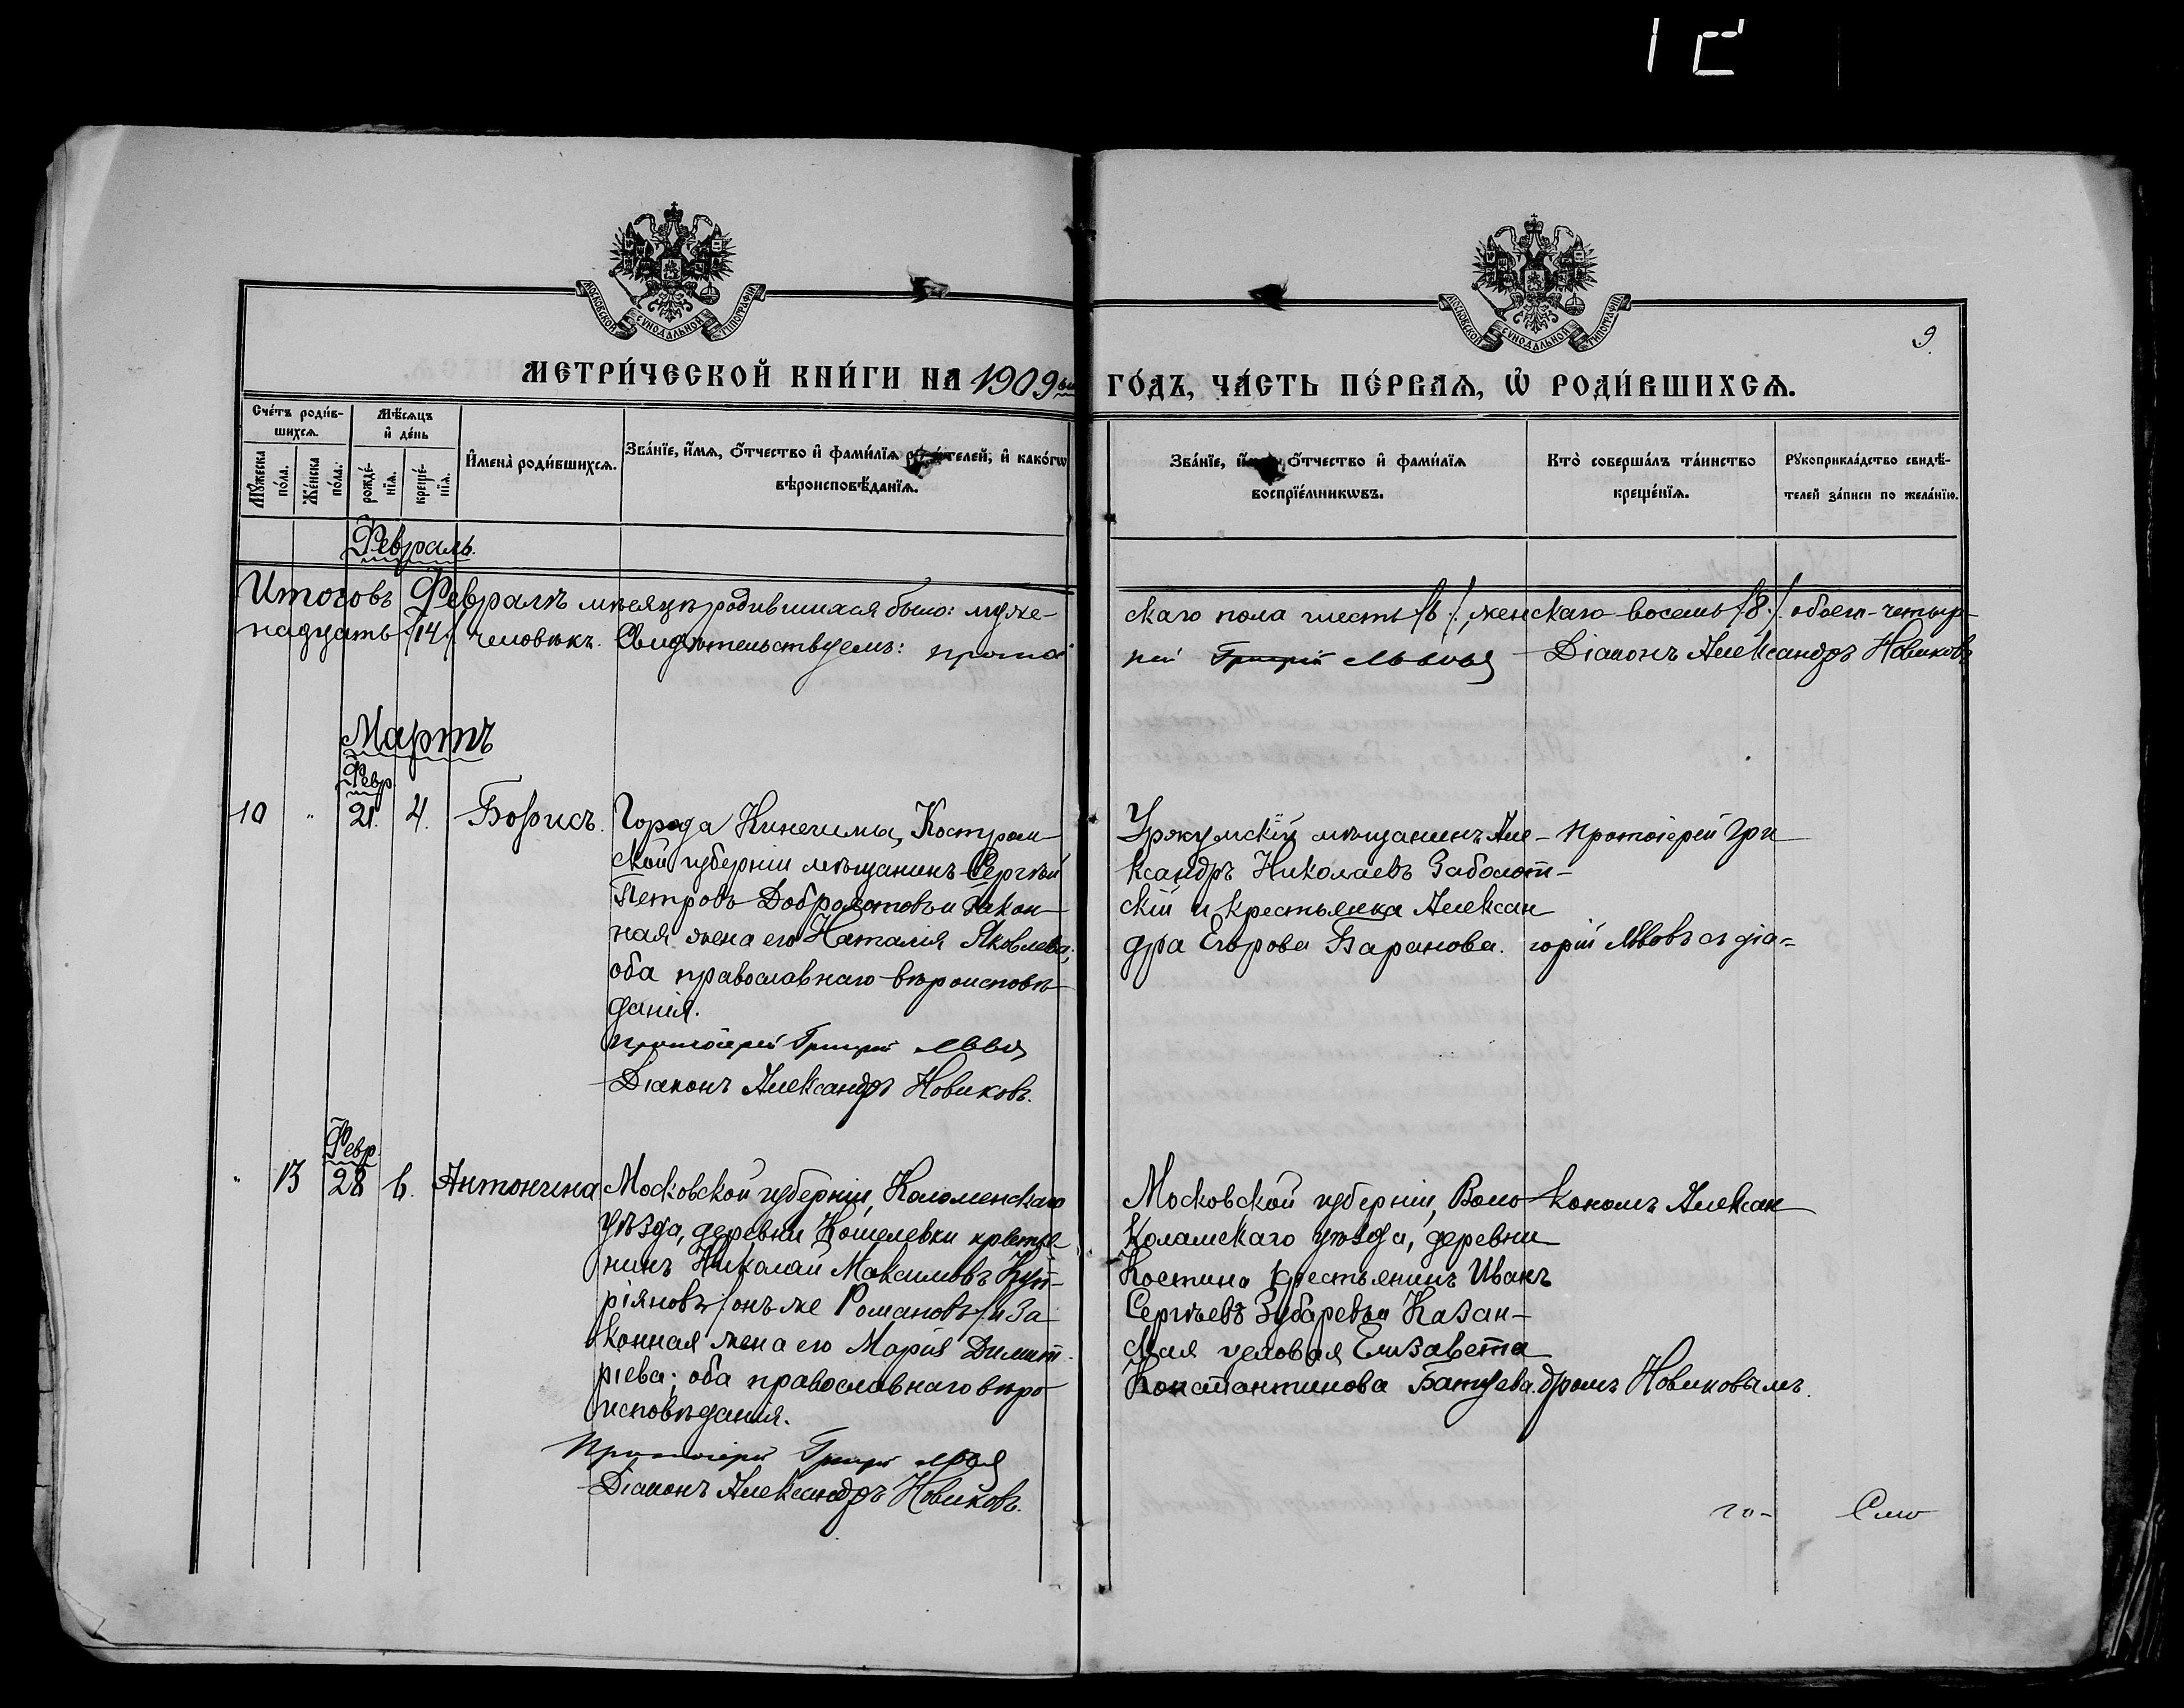 МОСКОВСКОЙ СѴНОДАЛЬНОЙ ТІПОГРАФІИ
МОСКОВСКОЙ СѴНОДАЛЬНОЙ ТІПОГРАФІИ
9
МЕТРИ́ЧЕСКОЙ КНИ́ГИ НА 1909 ГО́ДЪ, ЧА́СТЬ ПЕ́РВАѦ, Ѿ РОДИ́ВШИХСѦ.
Сче́тъ роди́в-
шихсѧ.
Мꙋжеска по́ла.
Же́нска по́ла.
Мѣ́сѧцъ
и҆ де́нь
рожде́-
нїѧ.
креще́-
нїѧ.
И҆мена̀ роди́вшихсѧ.
Зва́нїе, и҆́мѧ, о҆́тчество и҆ фамѝлїѧ роди́телей, и҆ како́гѡ
вѣроисповѣ́данїѧ.
Зва́нїе, о҆́тчество и҆ фамѝлїѧ
воспрїе́мникѡвъ.
Кто̀ соверша́лъ та́инство
креще́нїѧ.
Рꙋкоприкла́дство свидѣ́-
телей за́писи по жела́нїю.
Февраль.
Итого въ Февралѣ мѣсяцѣ родившихся было: муже-
скаго пола шесть /6./, женскаго восемь /8./. обоего-четыр-
надцать /14/. человѣкъ. Свидѣтельствуемъ: протоі
рей Григорій Львовъ Діаконъ Александръ Новиковъ
Мартъ
Февр.
10 " 21. 4. Борисъ.
Города Кинешмы, Костром-
ской губерніи мѣщанинъ Сергѣй
Петровъ Добролетовъ и закон-
ная жена его Наталія Яковлева,
оба православнаго вѣроисповѣ-
данія.
Протоіерей Григорій Львовъ
Діаконъ Александръ Новиковъ.
Уржумскій мѣщанинъ Але-
ксандръ Николаевъ Заболот-
скій и крестьянка Алексан
дра Егорова Баранова.
Протоіерей Гри
горій Львовъ съ діа-
Февр.
" 13 28 6. Антонина
Московской губерніи, Коломенскаго
уѣзда, деревни Кошелевки крестья-
нинъ Николай Максимовъ Куп-
ріяновъ /онъ же Романовъ/ и за
конная жена его Марія Димит-
ріева; оба православнаго вѣро
исповѣданія.
Протоіерей Григорій Львовъ
Діаконъ Александръ Новиковъ.
Московской губерніи, Воло
коламскаго уѣзда, деревни
Костина крестьянинъ Иванъ
Сергѣевъ Зубаревъ и Казан-
ская цеховая Елизавета
Константинова Батуева.
кономъ Алексан
дромъ Новиковымъ.
го-